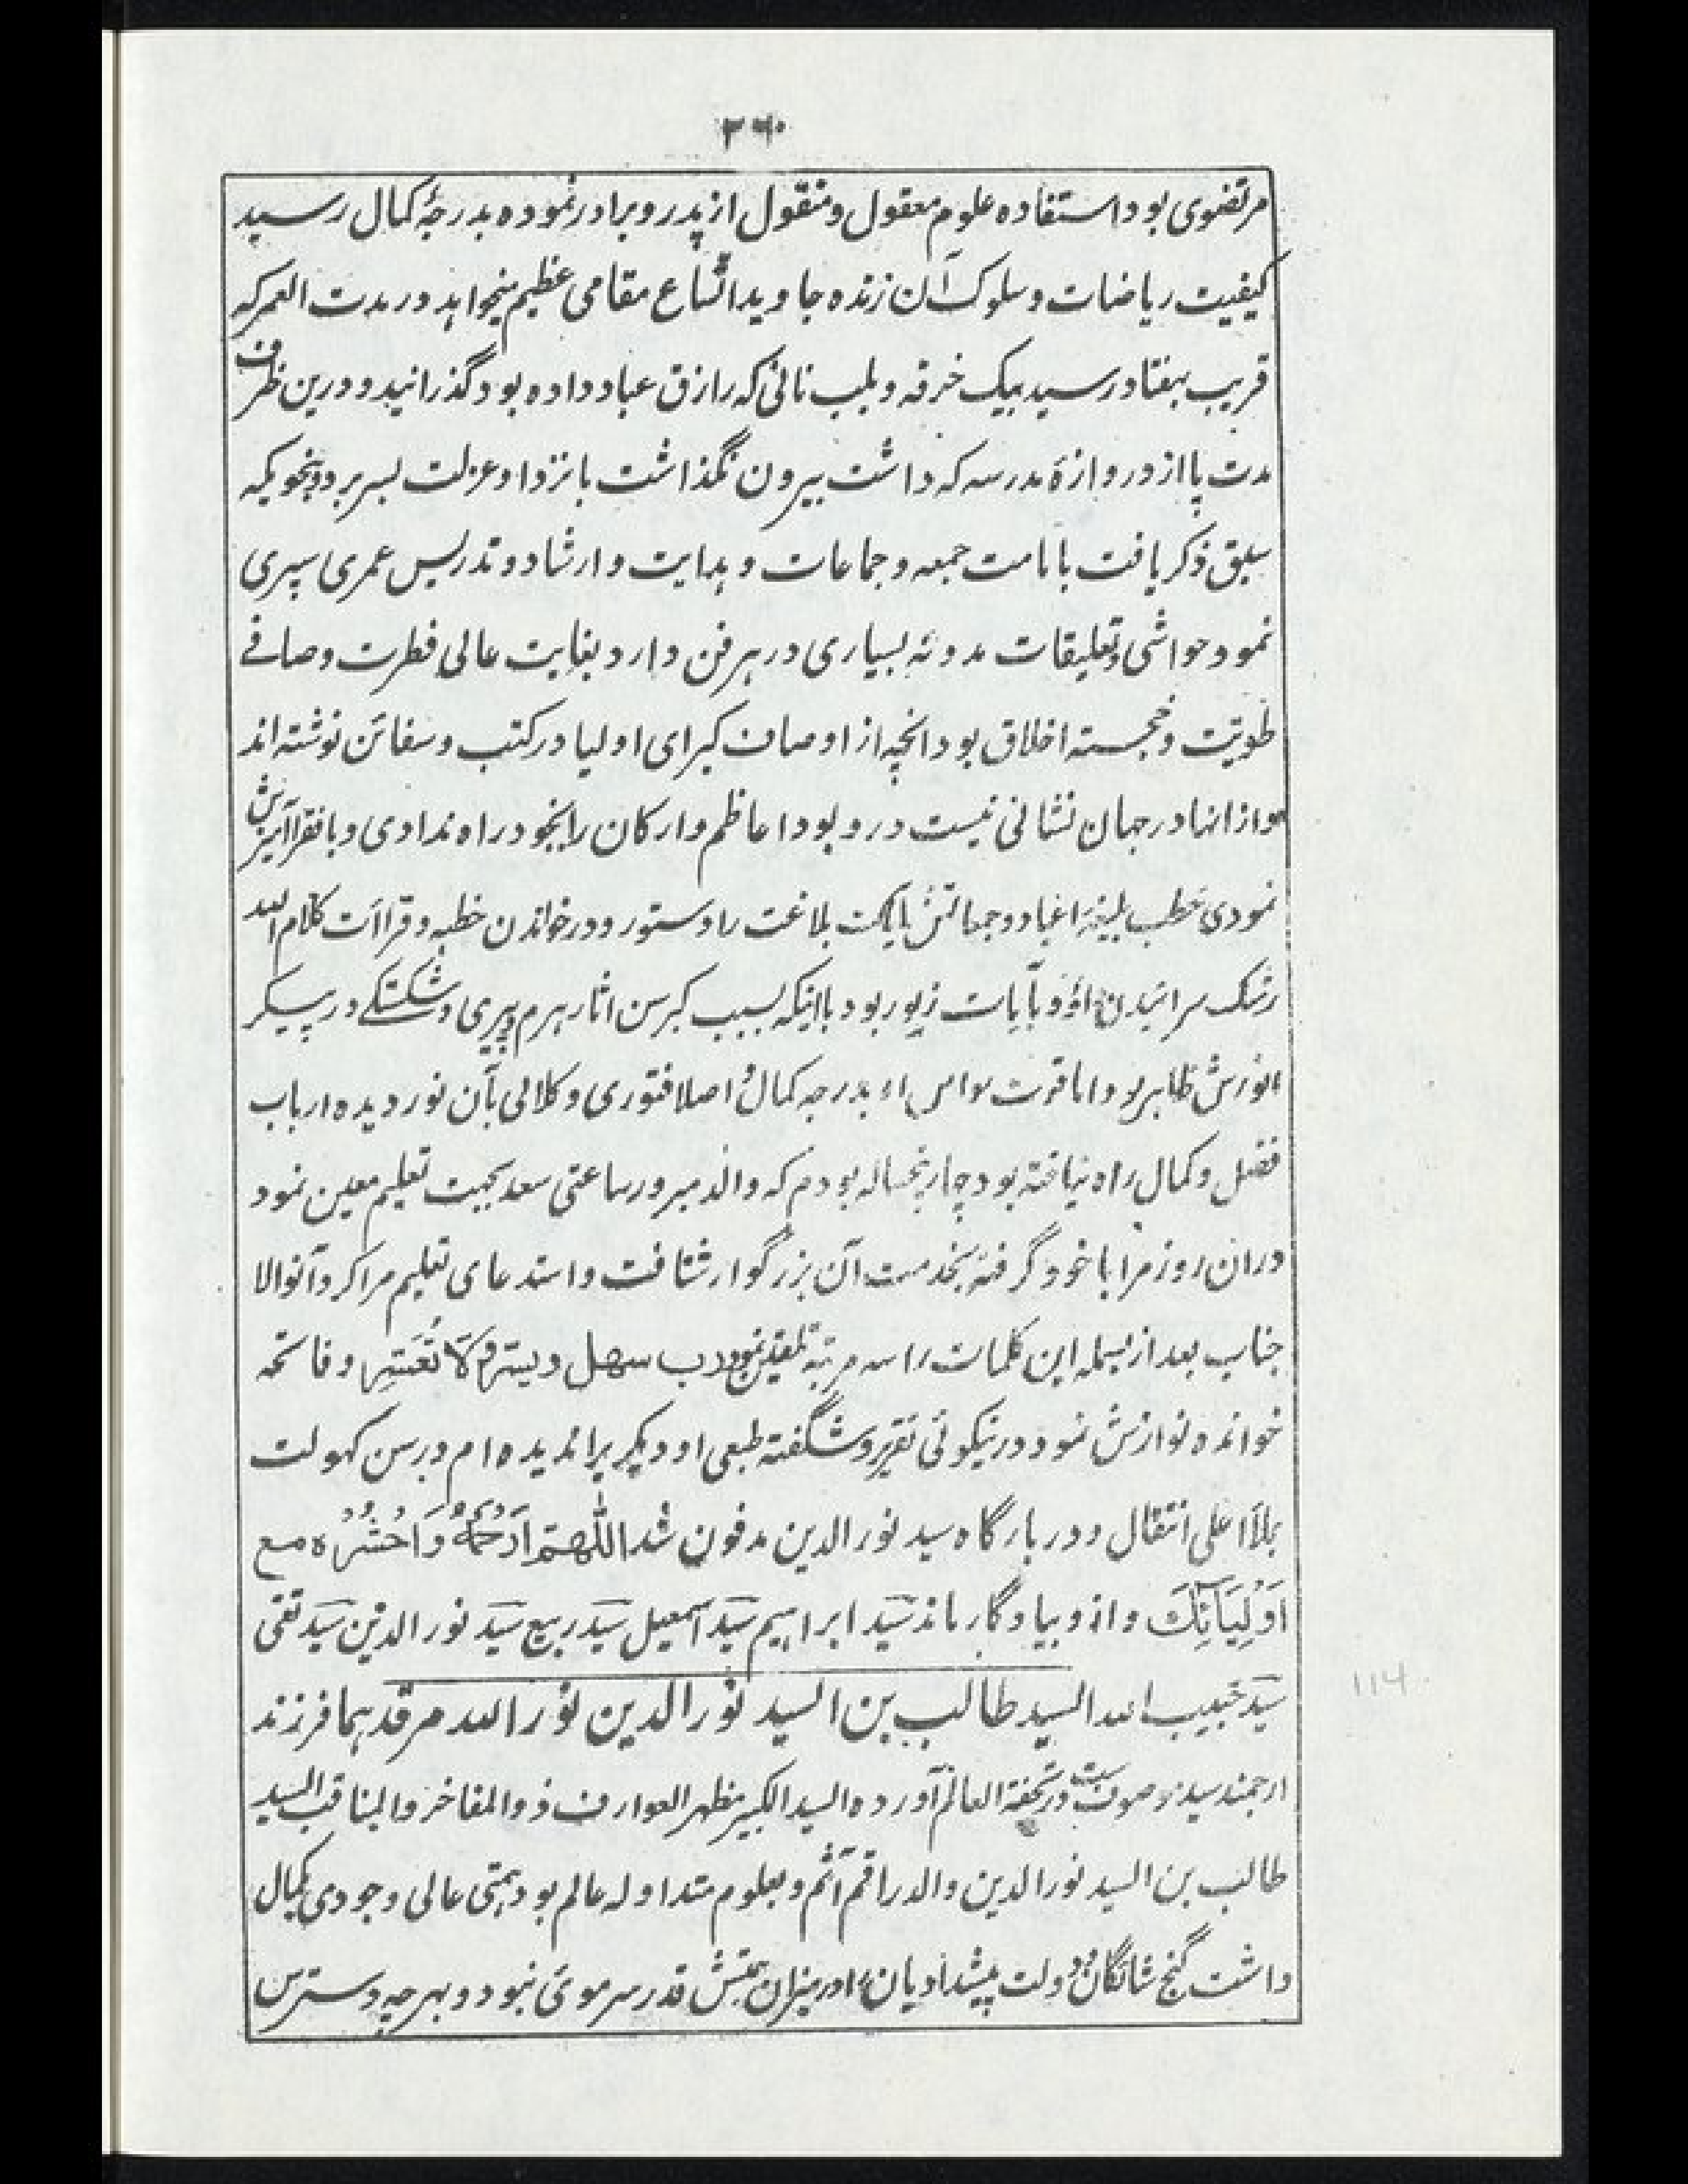 ۳۶۰
مرتضوی بود استفاده علوم معقول و منقول از پدر و برادر نموده بدرجهٔ کمال رسید
کیفیت ریاضات و سلوک آن زنده جاوید اتساع مقامی عظیم میخواهد در مدت العمر که
قریب بهفتاد رسید بیک خرقه و بلب نانی که رازق عباد داده بود گذرانید و درین ظرف
مدت پا از دروازهٔ مدرسه که داشت بیرون نگذاشت بانزوا و عزلت بسر برد و بنحویکه
سبق ذکر یافت بامامت جمعه و جماعات و هدایت و ارشاد و تدریس عمری سپری
نمود حواشی و تعلیقات مدونهٔ بسیاری در هر فن دارد بغایت عالی فطرت و صافے
طویت و خجسته اخلاق بود انچه از اوصاف کبرای اولیا در کتب و سفائن نوشته اند
و از انها در جهان نشانی نیست در و بود اعاظم و ارکان را بخود راه ندادی و با فقرا آمیزش
نمودی خطب بلیغهٔ اعیاد و جمعاتش بلاغت را دستور و در خواندن خطبه و قراأت کلام الله
رشک سرائیدن داؤد بآیات زبور بود با اینکه بسبب کبر سن اثار هرم و پیری و شکستگے در پیکر
انورش ظاهر بود اما قوت حواس بدرجه کمال و اصلا فتوری و کلالی بآن نور دیده ارباب
فضل و کمال راه نیافته بود چار پنجساله بودم که والد مبرور ساعتی سعد بجهت تعلیم معین نمود
دران روز مرا با خود گرفته بخدمت آن بزرگوار شتافت و استدعای تعلیم مرا کرد آنوالا
جناب بعد از بسمله این کلمات را سه مرتبه تلقین نمود رب سهل ویسر وَلَا تُعَسِّر و فاتحه
خوانده نوازش نمود در نیکوئی تقریر و شگفته طبعی او دیگریرا ندیده ام در سن کهولت
بملأ اعلی انتقال و در بارگاه سید نور الدین مدفون شد اَللّٰهُمَّ ارْحَمْهُ وَاحْشُرْهُ مع
اَوْلِیَائِکَ و ازو بیادگار ماند سَیّد ابراهیم سَیّد اسمعیل سَیّد ربیع سَیّد نور الدین سَیّد تقی
سَیّد حبیب الله السید طالب بن السید نور الدین نور الله مرقدهما فرزند
ارجمند سید موصوفست در تحفة العالم آورده السید الکبیر مظهر العوارف ذو المفاخر والمناقب السید
طالب بن السید نور الدین والد راقم آثم و بعلوم متداوله عالم بود همتی عالی و جودی بکمال
داشت گنج شائگان و دولت پیشدادیان را در میزان همتش قدر سر موئی نبود و بهرچه دسترس
114